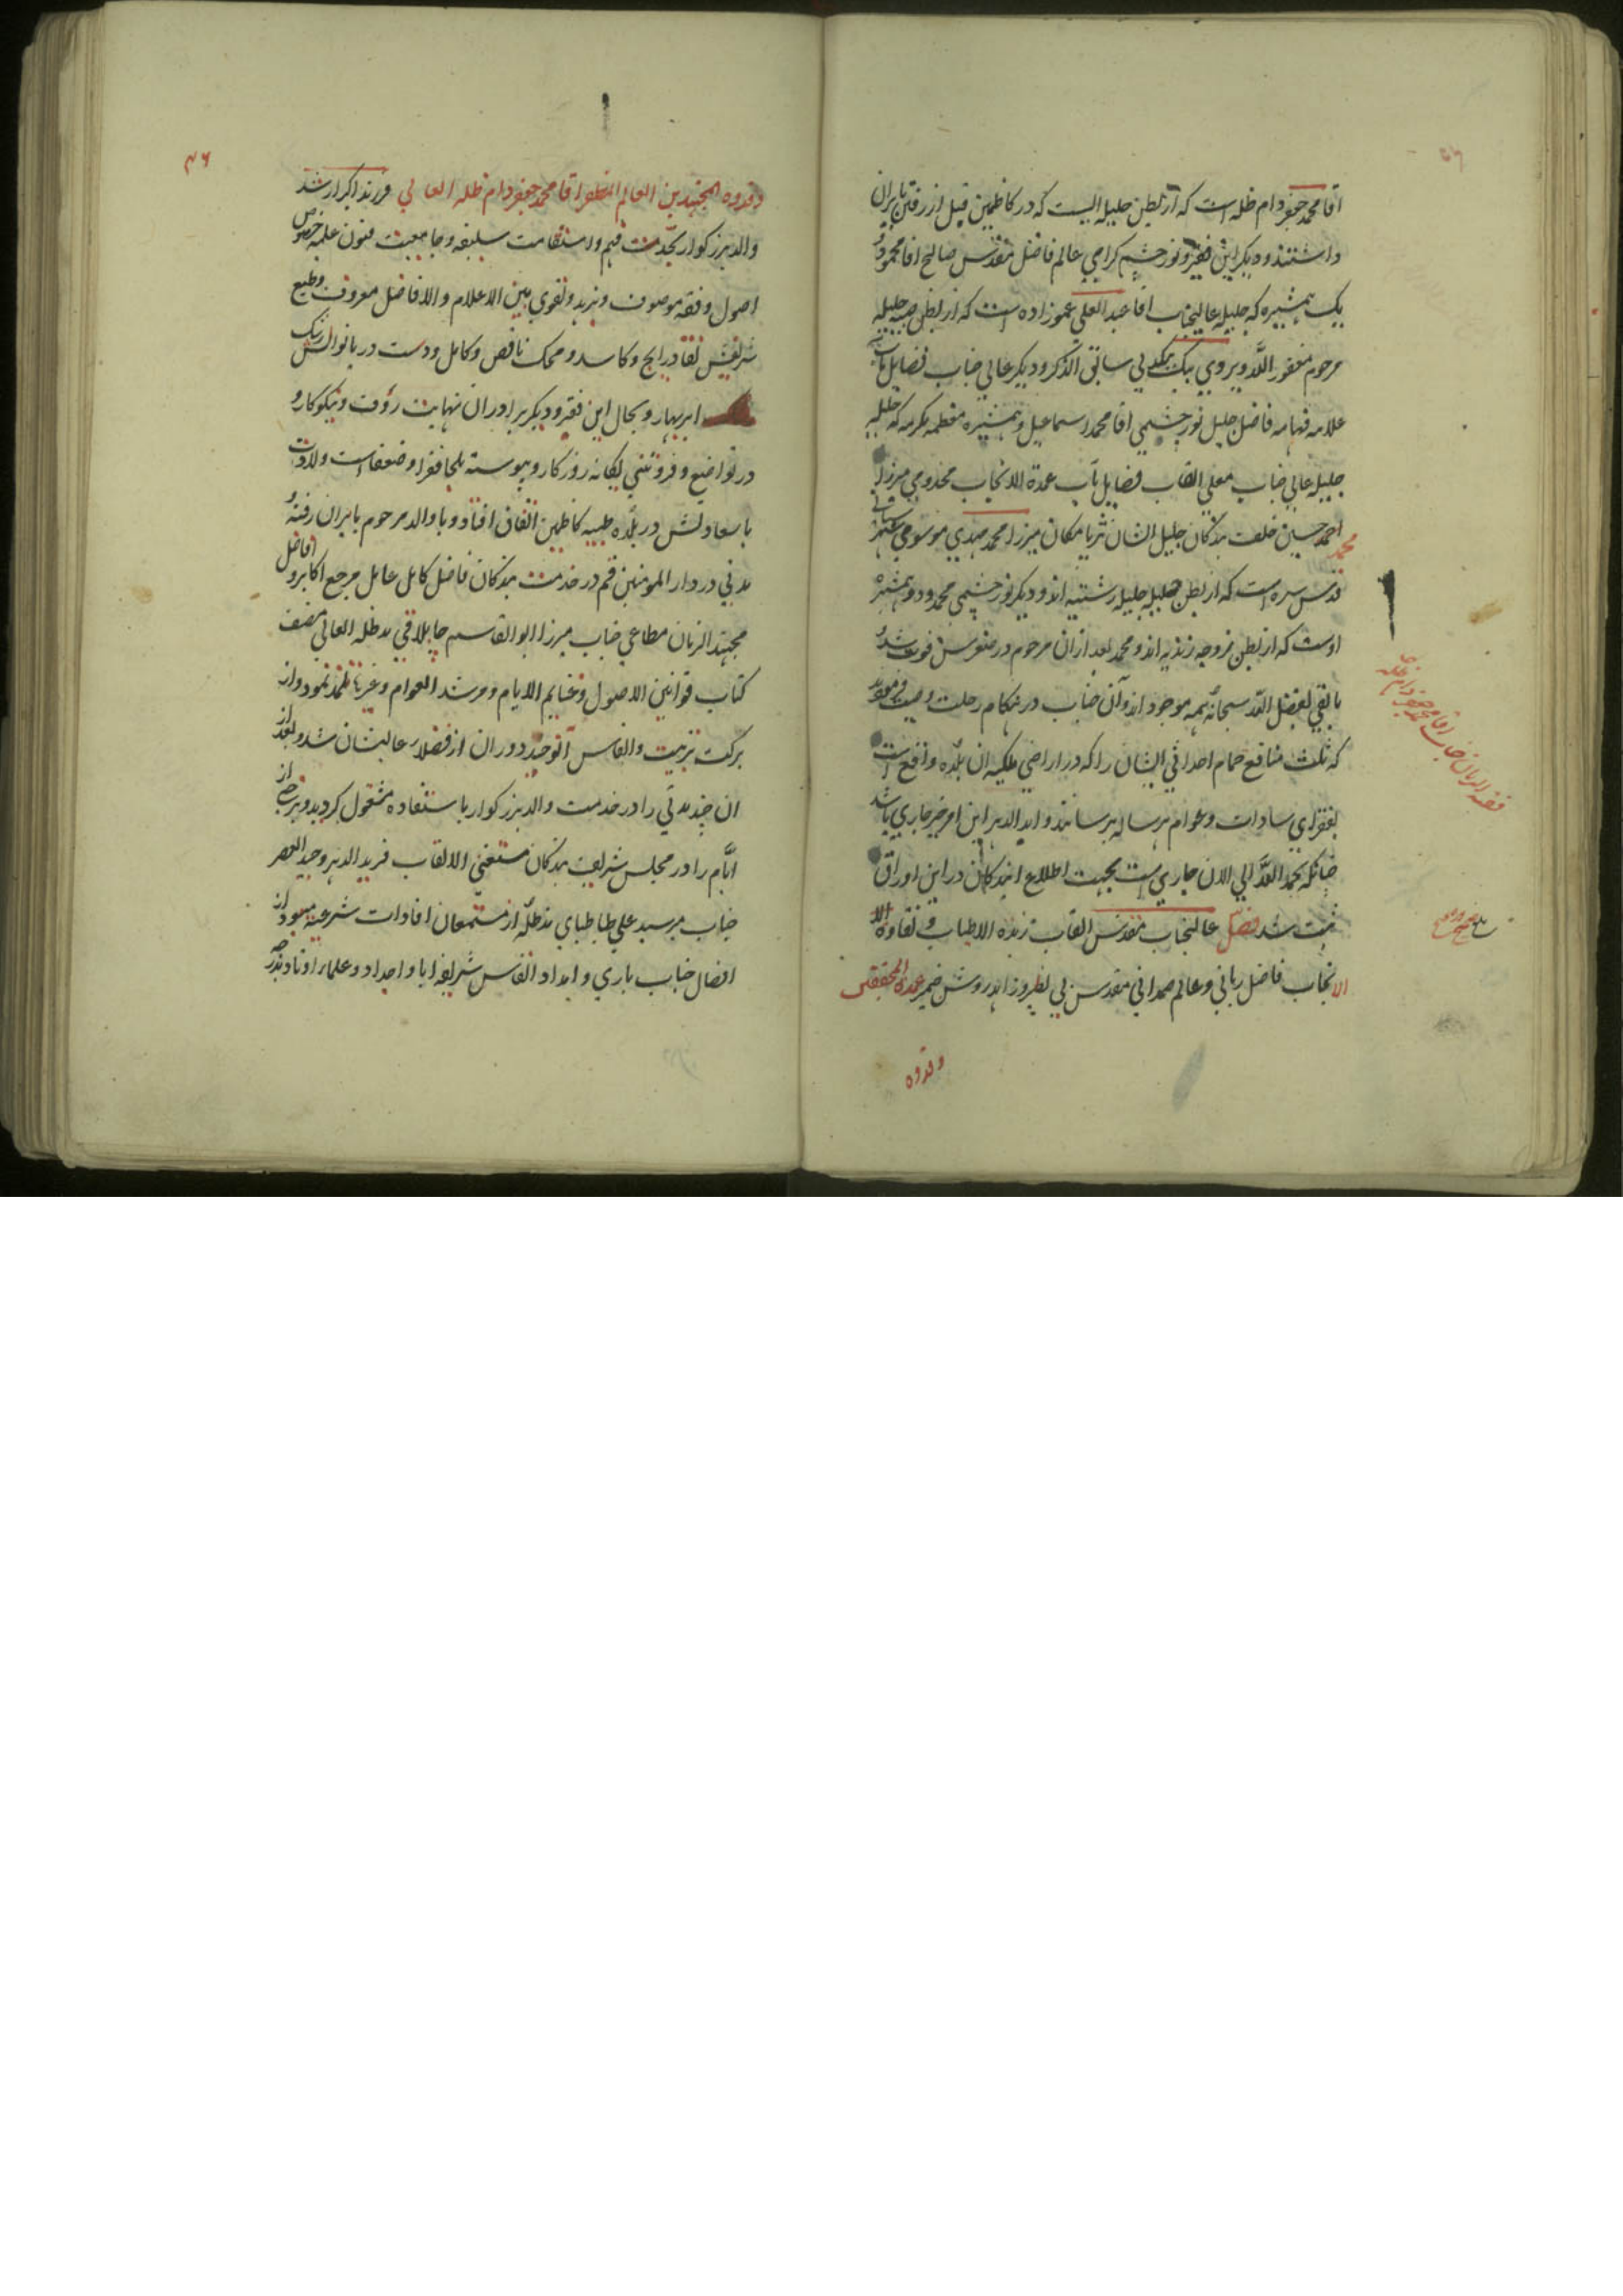 آقا محمد جعفر دام ظله است که از بطن جلیله ایست که در کاظمین قبل از رفتن بایران
داشتند و دیگر این فقیر و نور چشم گرامی عالم فاضل مقدس صالح آقا محمود و
یک همشیره که جلیله عالیجناب آقا عبد العلی عموزاده است که از بطن صبیه جلیله
مرحوم مغفور الله ویروی بیک سابق الذکر و دیگر عالی جناب فضایل مآب
علامه فهامه فاضل جلیل نور چشمی آقا محمد اسماعیل و همشیره معظمه مکرمه که حلیله
جلیله عالی جناب معلی القاب فضایل مآب عمدة الانجاب مخدومی میرزا
احمد حسین خلف بندگان جلیل الشان ثریا مکان میرزا محمد مهدی موسوی شهرستانی
محمد
قدس سره است که از بطن حلیله جلیله رشتیه اند و دیگر نور چشمی محمد و دو همشیره
اوست که از بطن زوجه زندیه اند و محمد بعد از ان مرحوم در صغر سن فوت شد و
باقی بفضل الله سبحانه همه موجود اند و آن جناب در هنگام رحلت وصیت فرمودند
که ثلث منافع حمام احداثی ایشان را که در اراضی ملکیه ان بلده واقع است
بفقرای سادات و عوام هر ساله برسانند و ابد الدهر این امر خیر جاری باشد
چنانکه بحمد الله الی الان جاری است بجهت اطلاع ایندگان در این اوراق
ثبت شد فصل عالیجناب مقدس القاب زبده الاطیاب و نقاوه الا
الانجاب فاضل ربانی و عالم صمدانی مقدس بی نظیر و زاهد روشن ضمیر عمدة المحققین
وقدوه
وقدوه المجتهدین العالم المظفر اقا محمد جعفر دام ظله العالی فرزند اکبر ارشد
والد بزرگوار بحدّت فهم و استقامت سلیقه و جامعیت فنون علمیه خصوص
اصول و فقه موصوف و بزهد و تقوی بین الاعلام و الافاضل معروف و طبع
شریفش نقاد رایج و کاسد و محک ناقص و کامل و دست دریا نوالش رشک
ابر بهار و بحال این فقیر و دیگر برادران نهایت رؤف و نیکوکار و
در تواضع و فروتنی یگانه روزگار و پیوسته ملجا فقرا و ضعفا است ولادت
با سعادتش در بلده طیبه کاظمین اتفاق افتاد و با والد مرحوم بایران رفته و
مدتی در دار المومنین قم در خدمت بندگان فاضل کامل عامل مرجع اکابر و افاضل
مجتهد الزمان مطاعی جناب میرزا ابو القاسم جاپلاقی مد ظله العالی مصنف
کتاب قوانین الاصول و غنایم الایام و مرشد العوام و غیرها تلمذ نمود و از
برکت تربیت و انفاس آنوحید دوران از فضلاء عالیشان شد و بعد از
ان چند مدتی را در خدمت والد بزرگوار باستفاده مشغول گردید و برخی از
ایّام را در مجلس شریف بندگان مستغنی الالقاب فرید الدهر وحید العصر
جناب میر سید علی طباطبای مد ظلّه از مستمعان افادات شرعیه میبود از
افضال جناب باری و امداد انفاس شریفه ابا و اجداد و علماء اوتاد بندر
۴۶